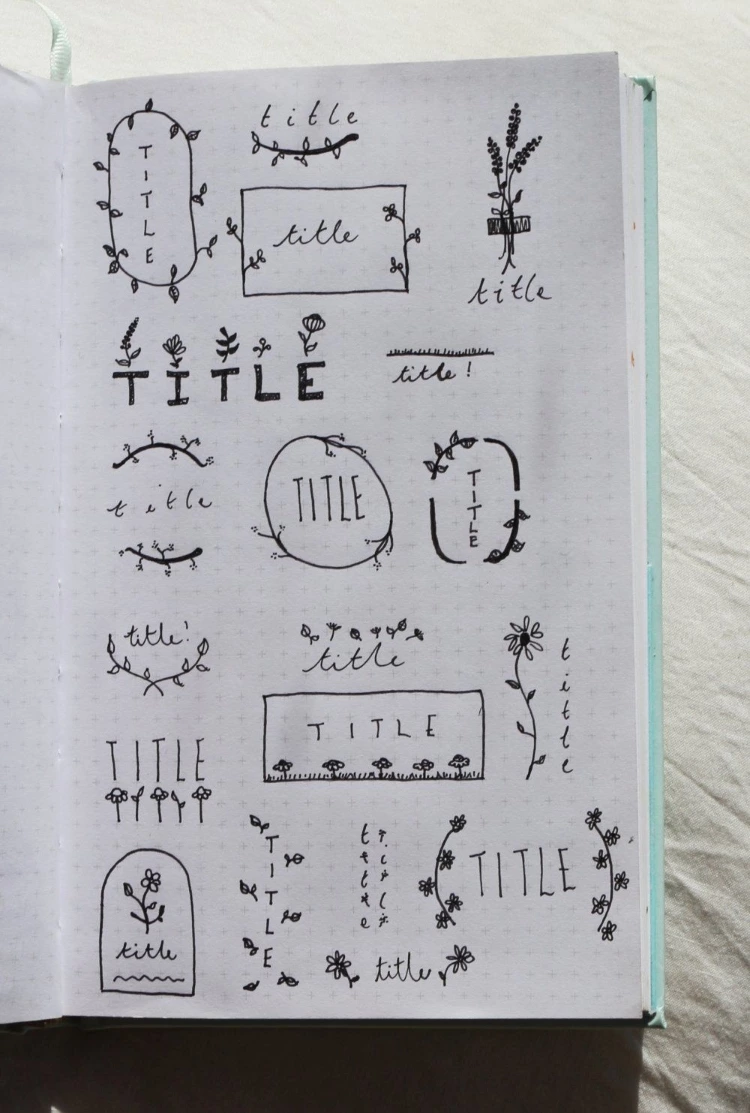 TITLE
title
title
title
TITLE
title!
title
TITLE
TITLE
title!
title
title
TITLE
TITLE
TITLE
title
TITLE
title
title